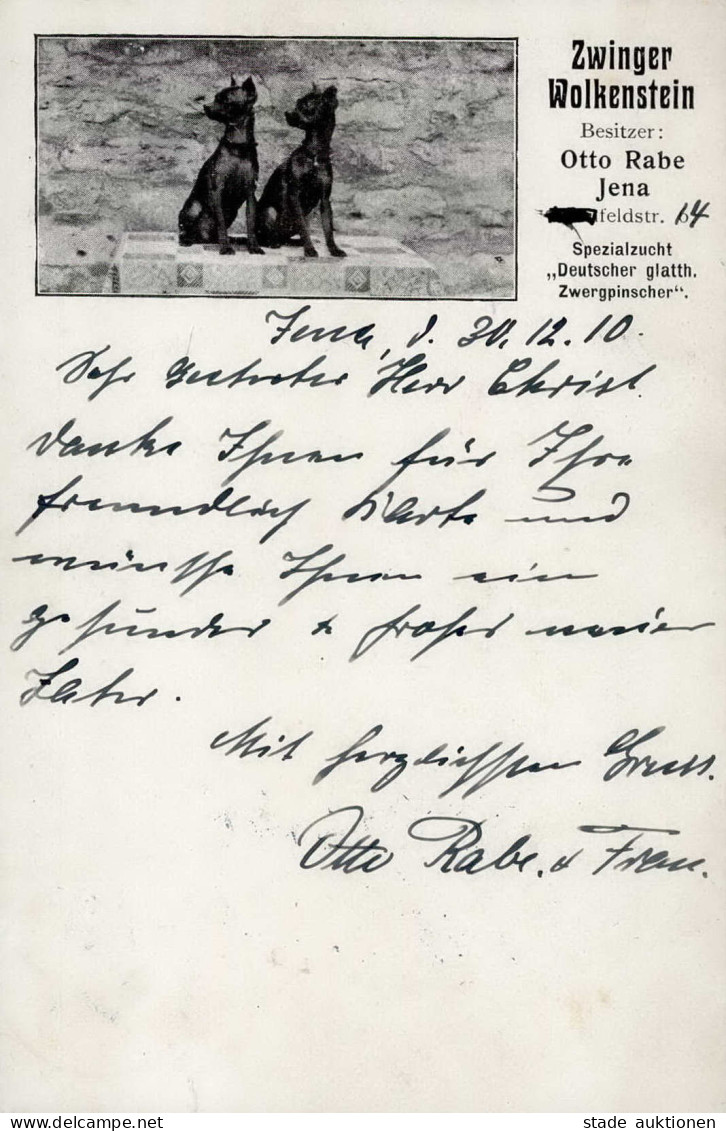 Zwinger
Wolkenstein
Besitzer:
Otto Rabe
Jena
feldstr. 64
Spezialzucht
„Deutscher glatth.
Zwergpinscher".
Jena, d. 30.12.10.
Sehr geehrter Herr Christ
Danke Ihnen für Ihre
freundlich Karte und
wünsche Ihnen ein
gesundes & frohes neues
Jahr.
Mit herzlichsten Gruss.
Otto Rabe. & Frau.
DELCAMPE.NET
stade auktionen